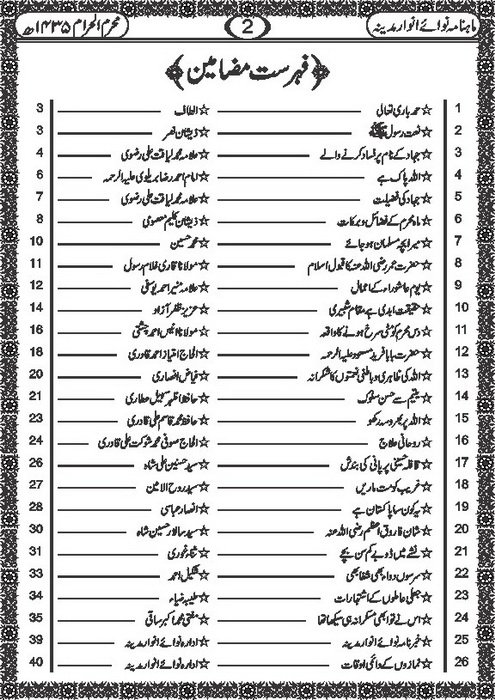 ماہنامہ نوائے انوار مدینہ 2 محرم الحرام ۱۴۳۵ھ
﴿فہرست مضامین﴾
1 ☆حمد باری تعالی ☆الطاف 3
2 ☆نعت رسول ﷺ ☆ذیشان نصر 3
3 ☆جہاد کے نام پر فساد کرنے والے ☆علامہ محمد لیاقت علی رضوی 4
4 ☆اللہ پاک ہے ☆امام احمد رضا بریلوی علیہ الرحمہ 6
5 ☆جہاد کی فضیلت ☆علامہ محمد لیاقت علی رضوی 7
6 ☆ماہ محرم کے فضائل و برکات ☆ذیشان کلیم معصومی 8
7 ☆میرا بچہ مسلمان ہو جائے ☆محمد حسین 10
8 ☆حضرت عمر رضی اللہ عنہ کا قبول اسلام ☆مولانا قاری غلام رسول 11
9 ☆یوم عاشوراء کے اعمال ☆علامہ منیر احمد یوسفی 12
10 ☆حقیقت ابدی ہے مقام شبیری ☆عزیز ظفر آزاد 14
11 ☆دس محرم کو مٹی سرخ ہونے کا واقعہ ☆مولانا انیس احمد چشتی 16
12 ☆حضرت بابا فرید مسعود علیہ الرحمہ ☆الحاج امتیاز احمد قادری 18
13 ☆اللہ کی ظاہری و باطنی نعمتوں کا شکرانہ ☆فیاض انصاری 20
14 ☆یتیم سے حسن سلوک ☆حافظ اظہر سجیل عطاری 21
15 ☆اللہ پر بھروسہ رکھو ☆حافظ محمد قاسم علی قادری 23
16 ☆روحانی علاج ☆الحاج صوفی محمد شوکت علی قادری 24
17 ☆قافلہ حسینی پر پانی کی بندش ☆سید حسنین علی شاہ 26
18 ☆غریب کو مت ماریں ☆سید روح الامین 27
19 ☆یہ کون سا پاکستان ہے ☆انصار عباسی 28
20 ☆شان فاروق اعظم رضی اللہ عنہ ☆سید سالار حسین شاہ 30
21 ☆نشے میں ڈوبے کم سن بچے ☆ثناء غوری 31
22 ☆سرسوں دوا بھی شفا بھی ☆شکیل احمد 33
23 ☆جعلی عاملوں کے اشتہارات ☆طیبہ ضیاء 34
24 ☆اس نے تو ابھی مسکرانہ ہی سیکھا تھا ☆مفتی محمد اکبر ساقی 35
25 ☆خبرنامہ نوائے انوار مدینہ ☆ادارہ نوائے انوار مدینہ 39
26 ☆نمازوں کے دائمی اوقات ☆ادارہ نوائے انوار مدینہ 40